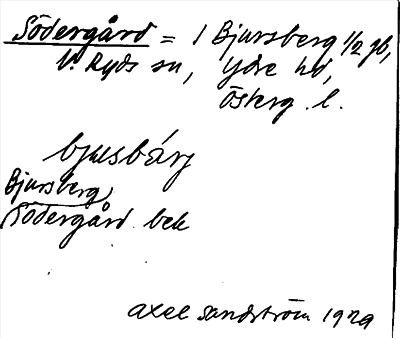 Södergård = 1 Bjursberg 1/2 gb,
V. Ryds sn, Ydre hd,
Österg. l.
bjusbärj
Bjursberg
Södergård bek
Axel Sandström 1929